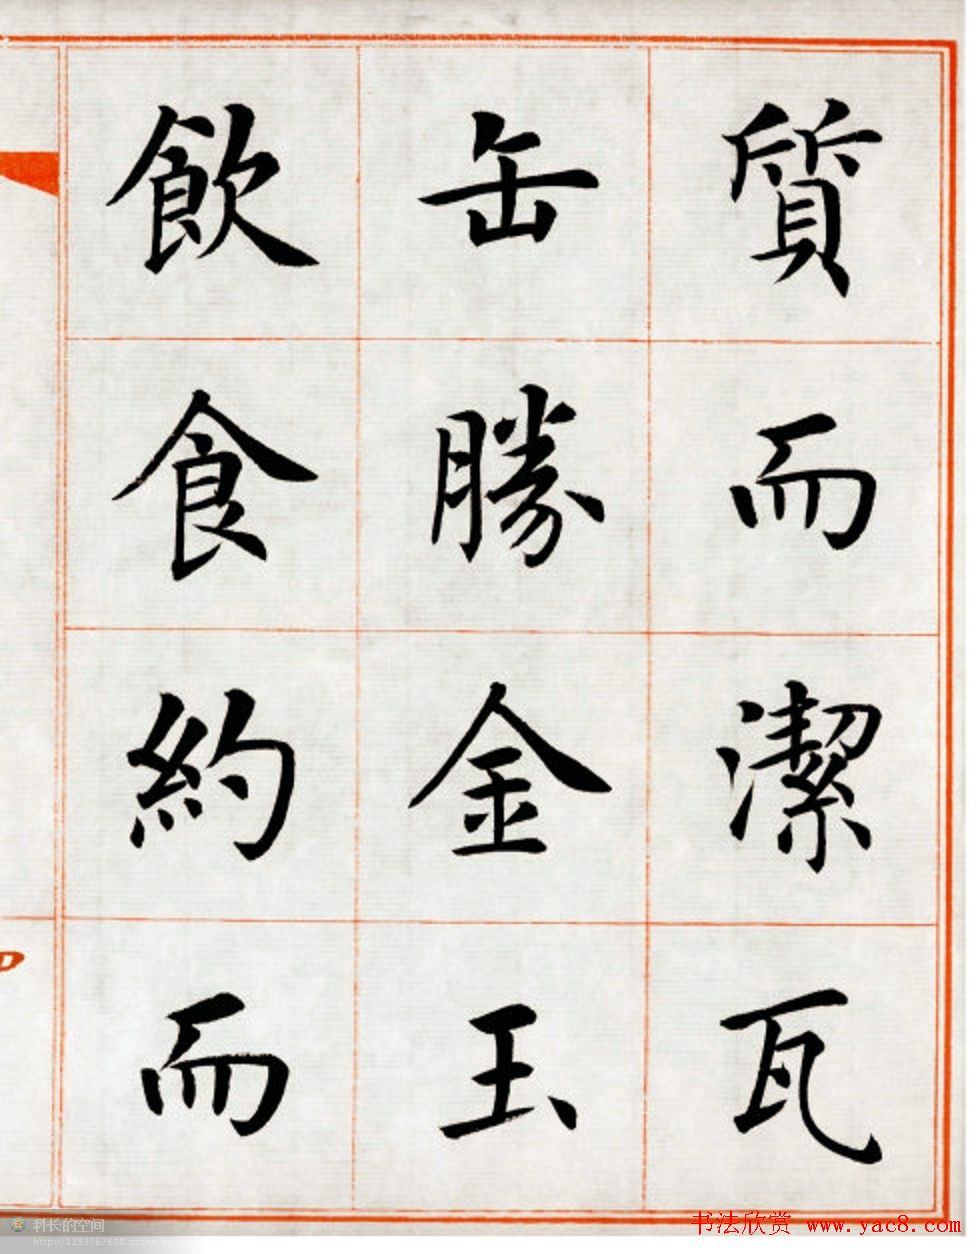 質而潔瓦
缶勝金玉
飲食約而
科长的空间
http://1193767618.qzone.qq.com
书法欣赏 www.yac8.com